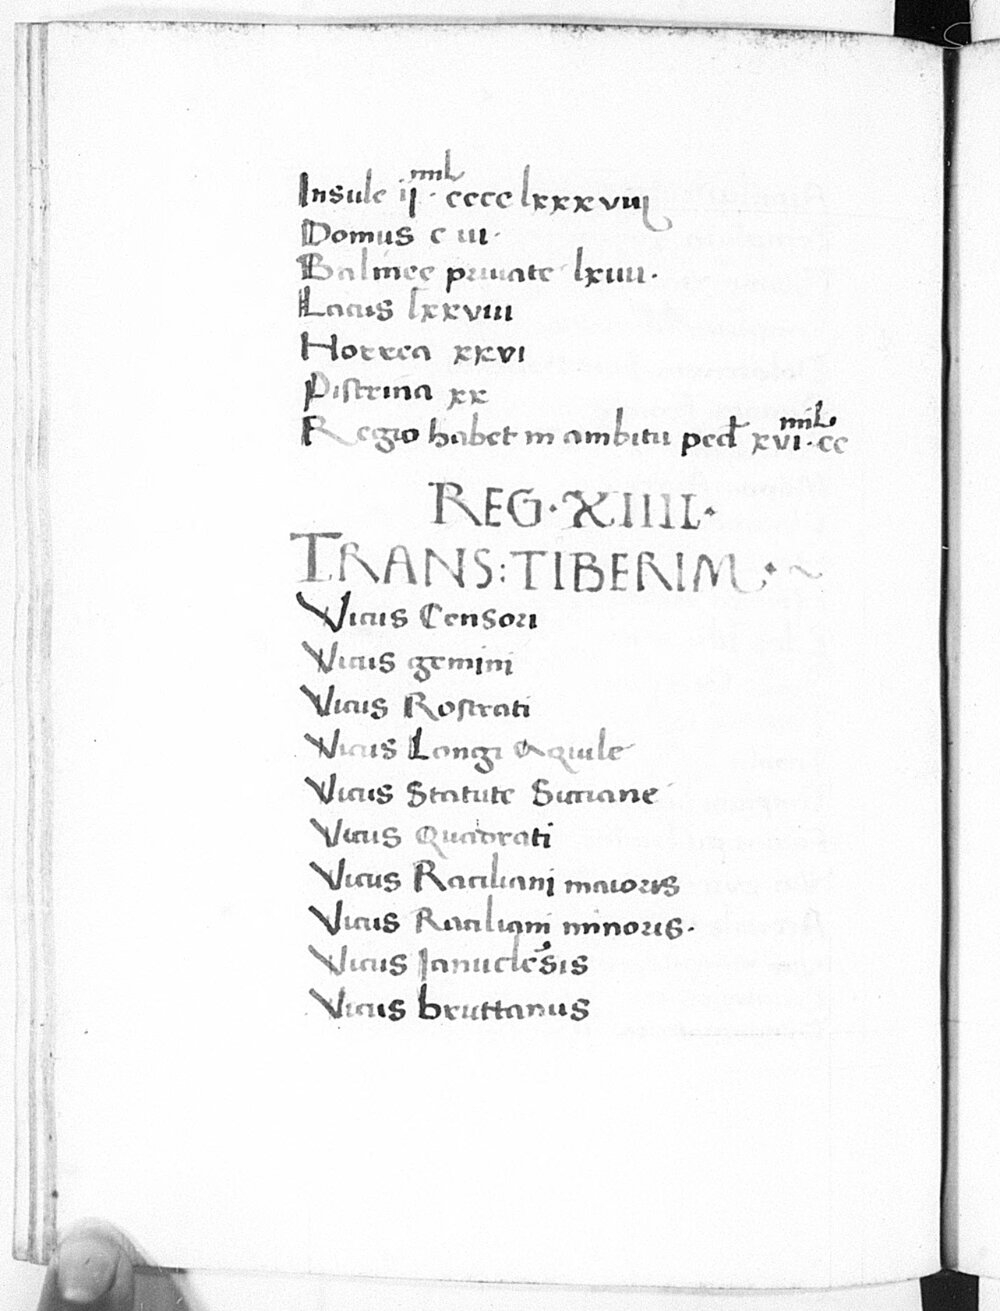 Insule ij mil · cccc lxxxviij
Domus c iii·
Balinee priuate lxiiii·
Lacus lxxviii
Horrea xxvi
Pistrina xx
Regio habet in ambitu ped xvi mil· cc
REG·XIIII·
TRANS:TIBERIM·~
Vicus Censori
Vicus gemini
Vicus Rostrati
Vicus Longi Aquile
Vicus Statute Sicciane
Vicus Quadrati
Vicus Raciliani maioris
Vicus Raciliani minoris·
Vicus Ianuclēsis
Vicus bruttanus